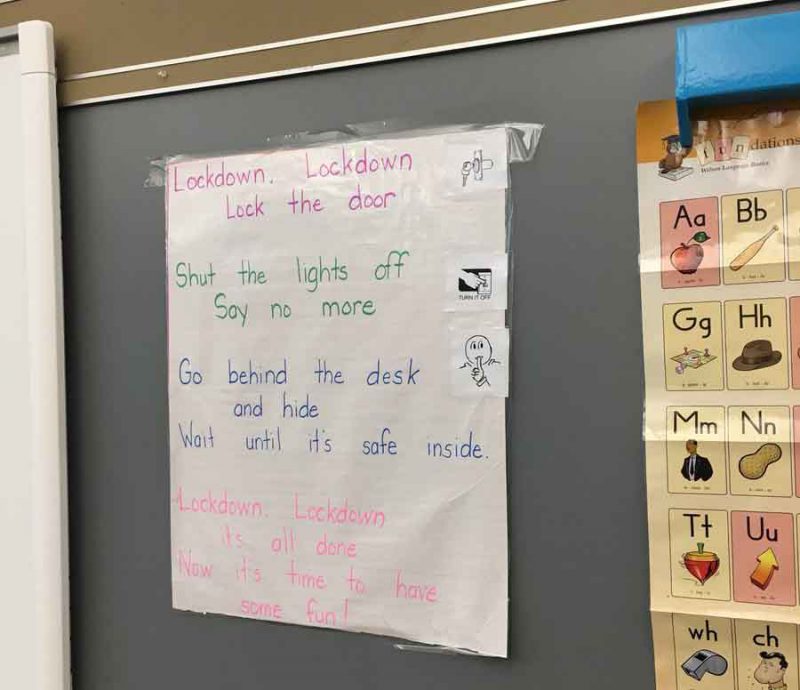 Lockdown. Lockdown
Lock the door
Shut the lights off
Say no more
TURN IT OFF
Go behind the desk
and hide
Wait until it's safe inside.
Lockdown. Lockdown
it's all done
Now it's time to have
some fun!
fundations
Wilson Language Basics
Aa
Bb
Gg
Hh
Mm
Nn
Tt
Uu
wh
ch